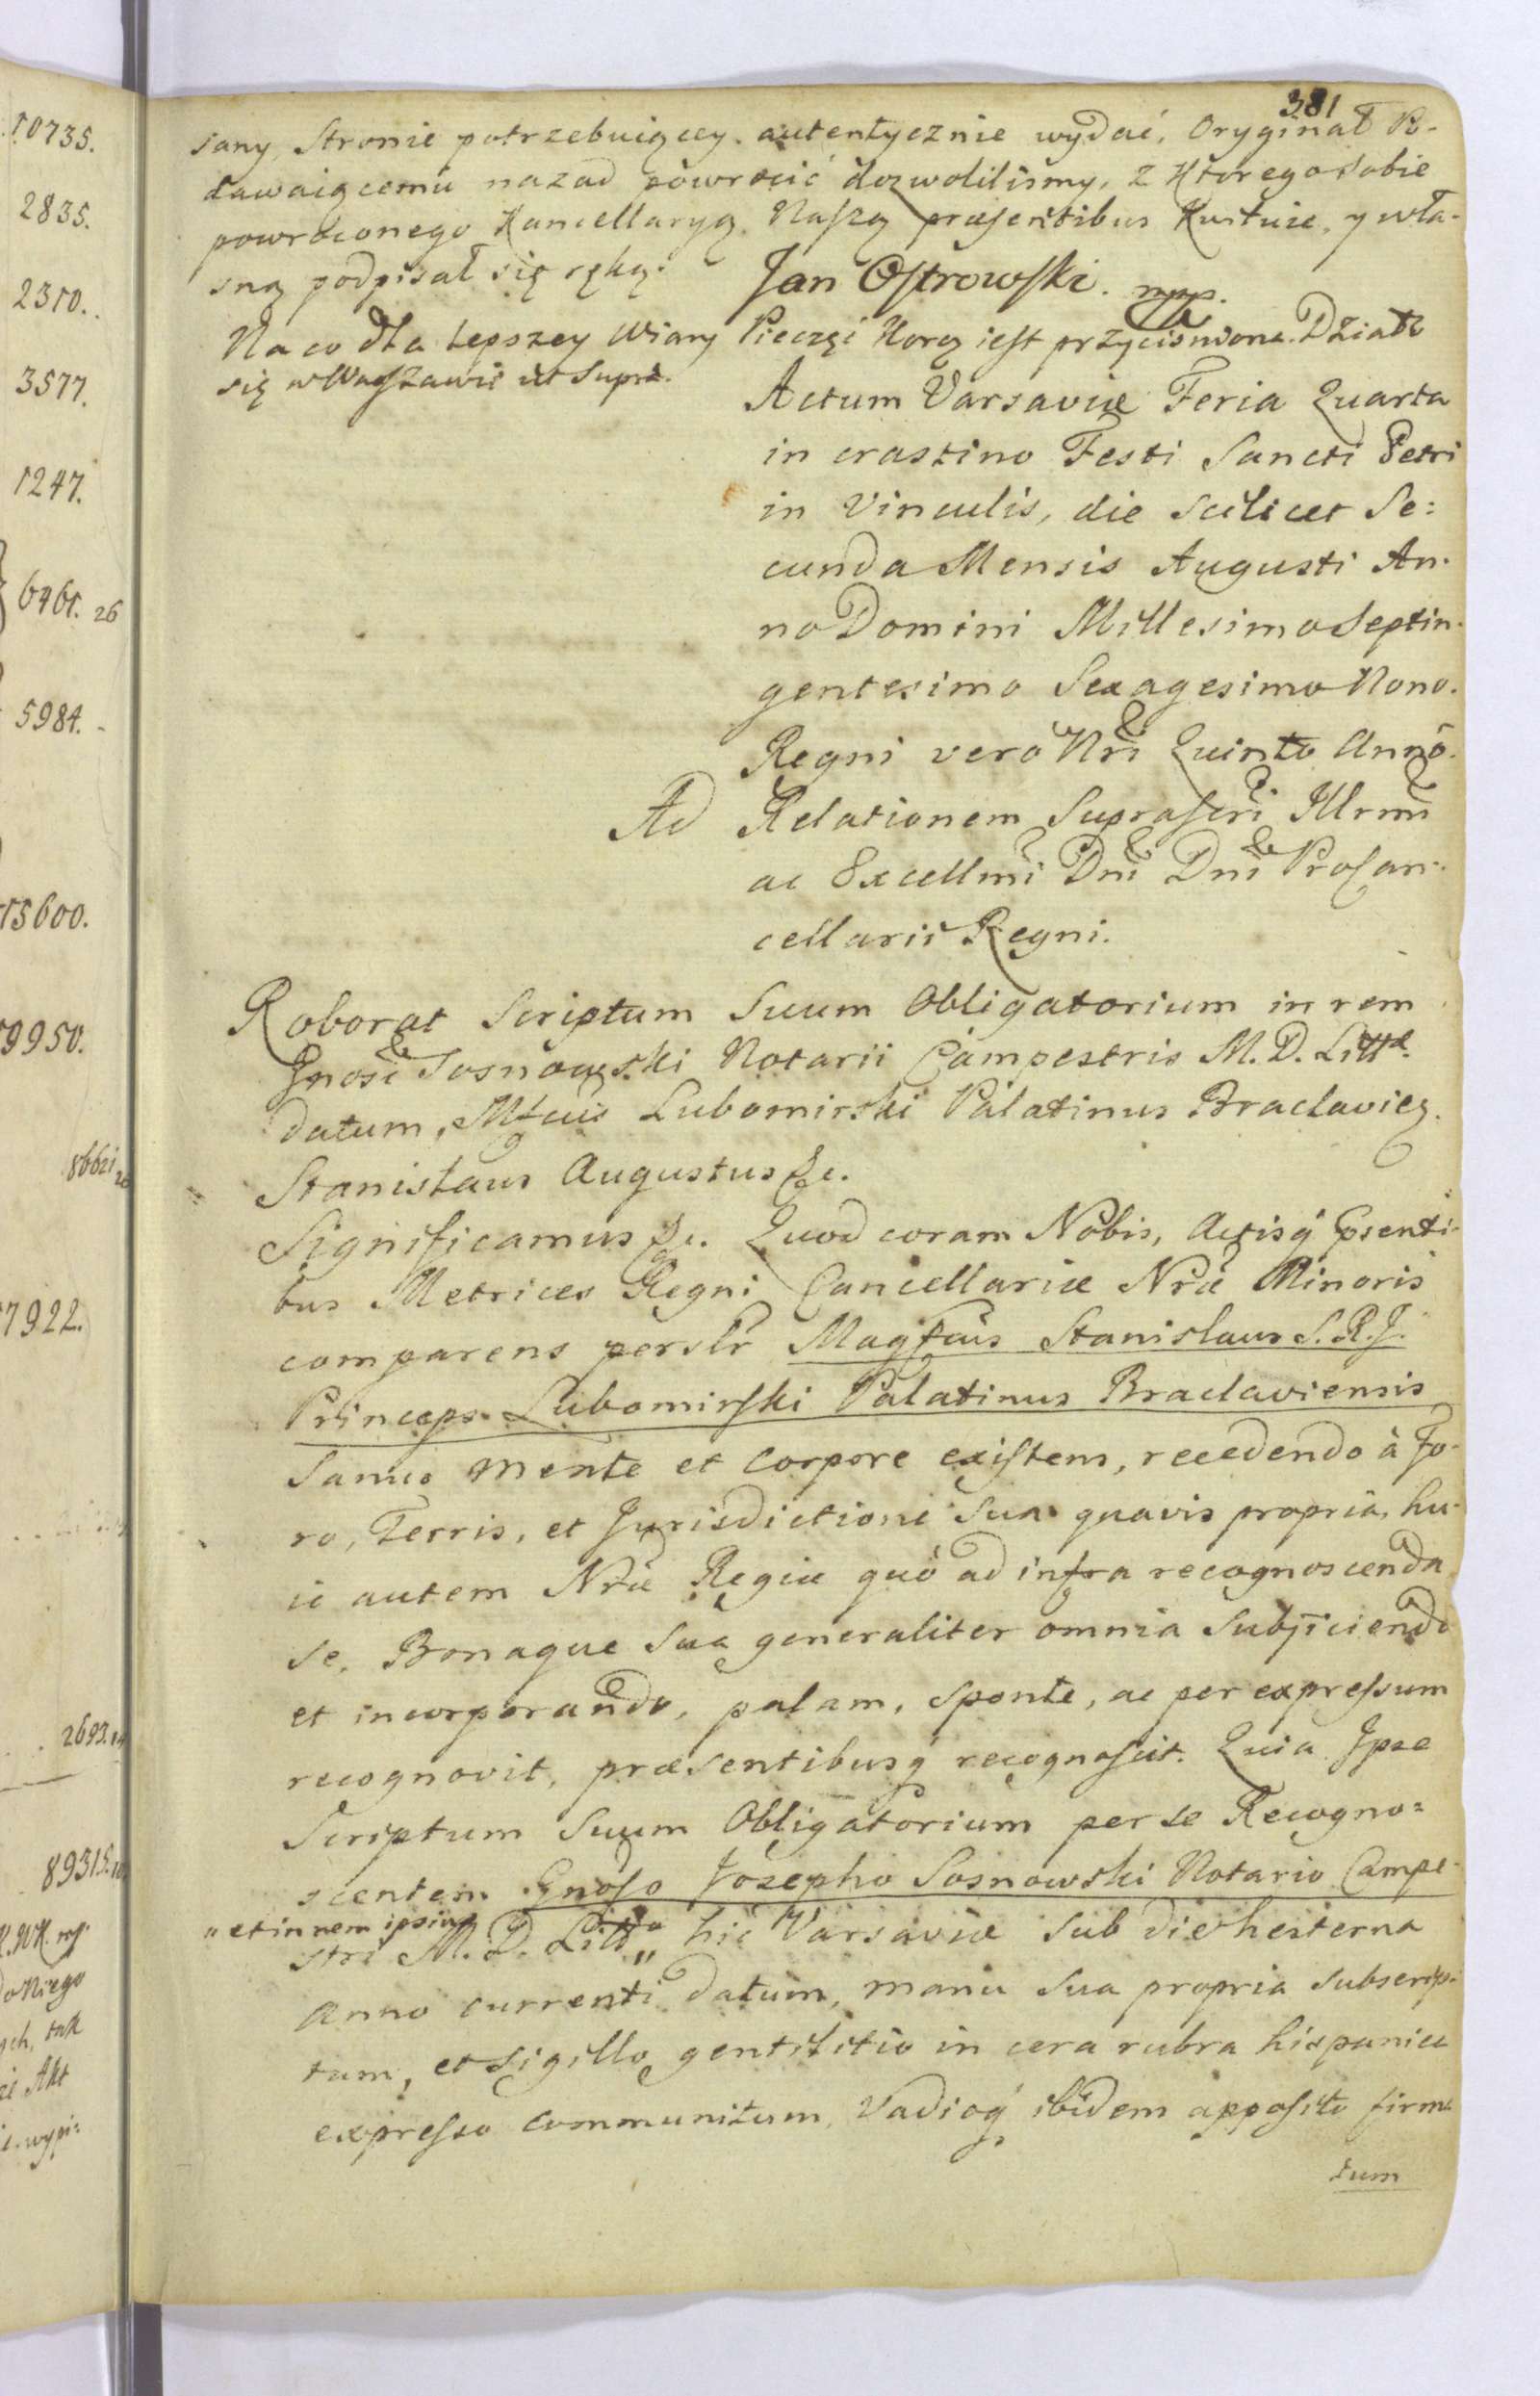 381
sany, Stronie potrzebuiącey autentycznie wydać, Oryginał Po-
dawaiącemu nazad powrocić dozwolilismy, z Ktorego sobie
powroconego Kancellaryą Naszą præsentibus Kwituie, y wła-
sną podpisał się ręką. Jan Ostrowski. mpp.
Na co dla lepszey Wiary Pieczęć Kora iest przycisniona. Działo
się w Warszawie ut Supra.
Actum Varsaviæ Feria Quarta
in crastino Festi Sancti Petri
in Vinculis, die scilicet Se:
cunda Mensis Augusti An-
no Domini Millesimo Septin-
gentesimo Sexagesimo Nono.
Regni vero Nri Quinto Anno.
Ad Relationem Suprascri Illrmi
ac Excellmi Dni Dni ProCan-
cellarii Regni.
Roborat Scriptum Suum Obligatorium in rem
Gnosi Sosnowski Notarii Campestris M. D. Littæ
datum, Mfcus Lubomirski Palatinus Braclavien.
Stanislaus Augustus &c.
Significamus &c. Quod coram Nobis, Actisq́ Pṡenti-
bus Metrices Regni Cancellariæ Nræ Minoris
comparens perslr Magfcus Stanislaus S. R. J.
Princeps Lubomirski Palatinus Braclaviensis
Sanus mente et corpore existens, recedendo à Fo-
ro, Terris, et Jurisdictione sua quavis propria, hu-
ic autem Nræ Regiæ quò ad infra recognoscenda
se, Bonaque sua generaliter omnia subjiciendo
et incorporando, palam, sponte, ac per expressum
recognovit, præsentibusq́ recognoscit. Quia Ipse
Scriptum Suum Obligatorium per se Recogno=
scentem Gnoso Josepho Sosnowski Notario Campe-
„ et in rem ipsius
stri M. D. Litt „ hic Varsaviæ sub die hesterna
anno currenti datum, manu sua propria subscrip-
tum, et sigillo gentilitio in cera rubra hispanica
expresso communitum, Vadioq́ ibidem apposito firma
tum
10735.
2835.
2310.
3577.
1247.
6461. 26
5984.
15600.
9950.
86621
7922.
2693.14
89315.
do Niego
ych, tak
Akt
wypi=